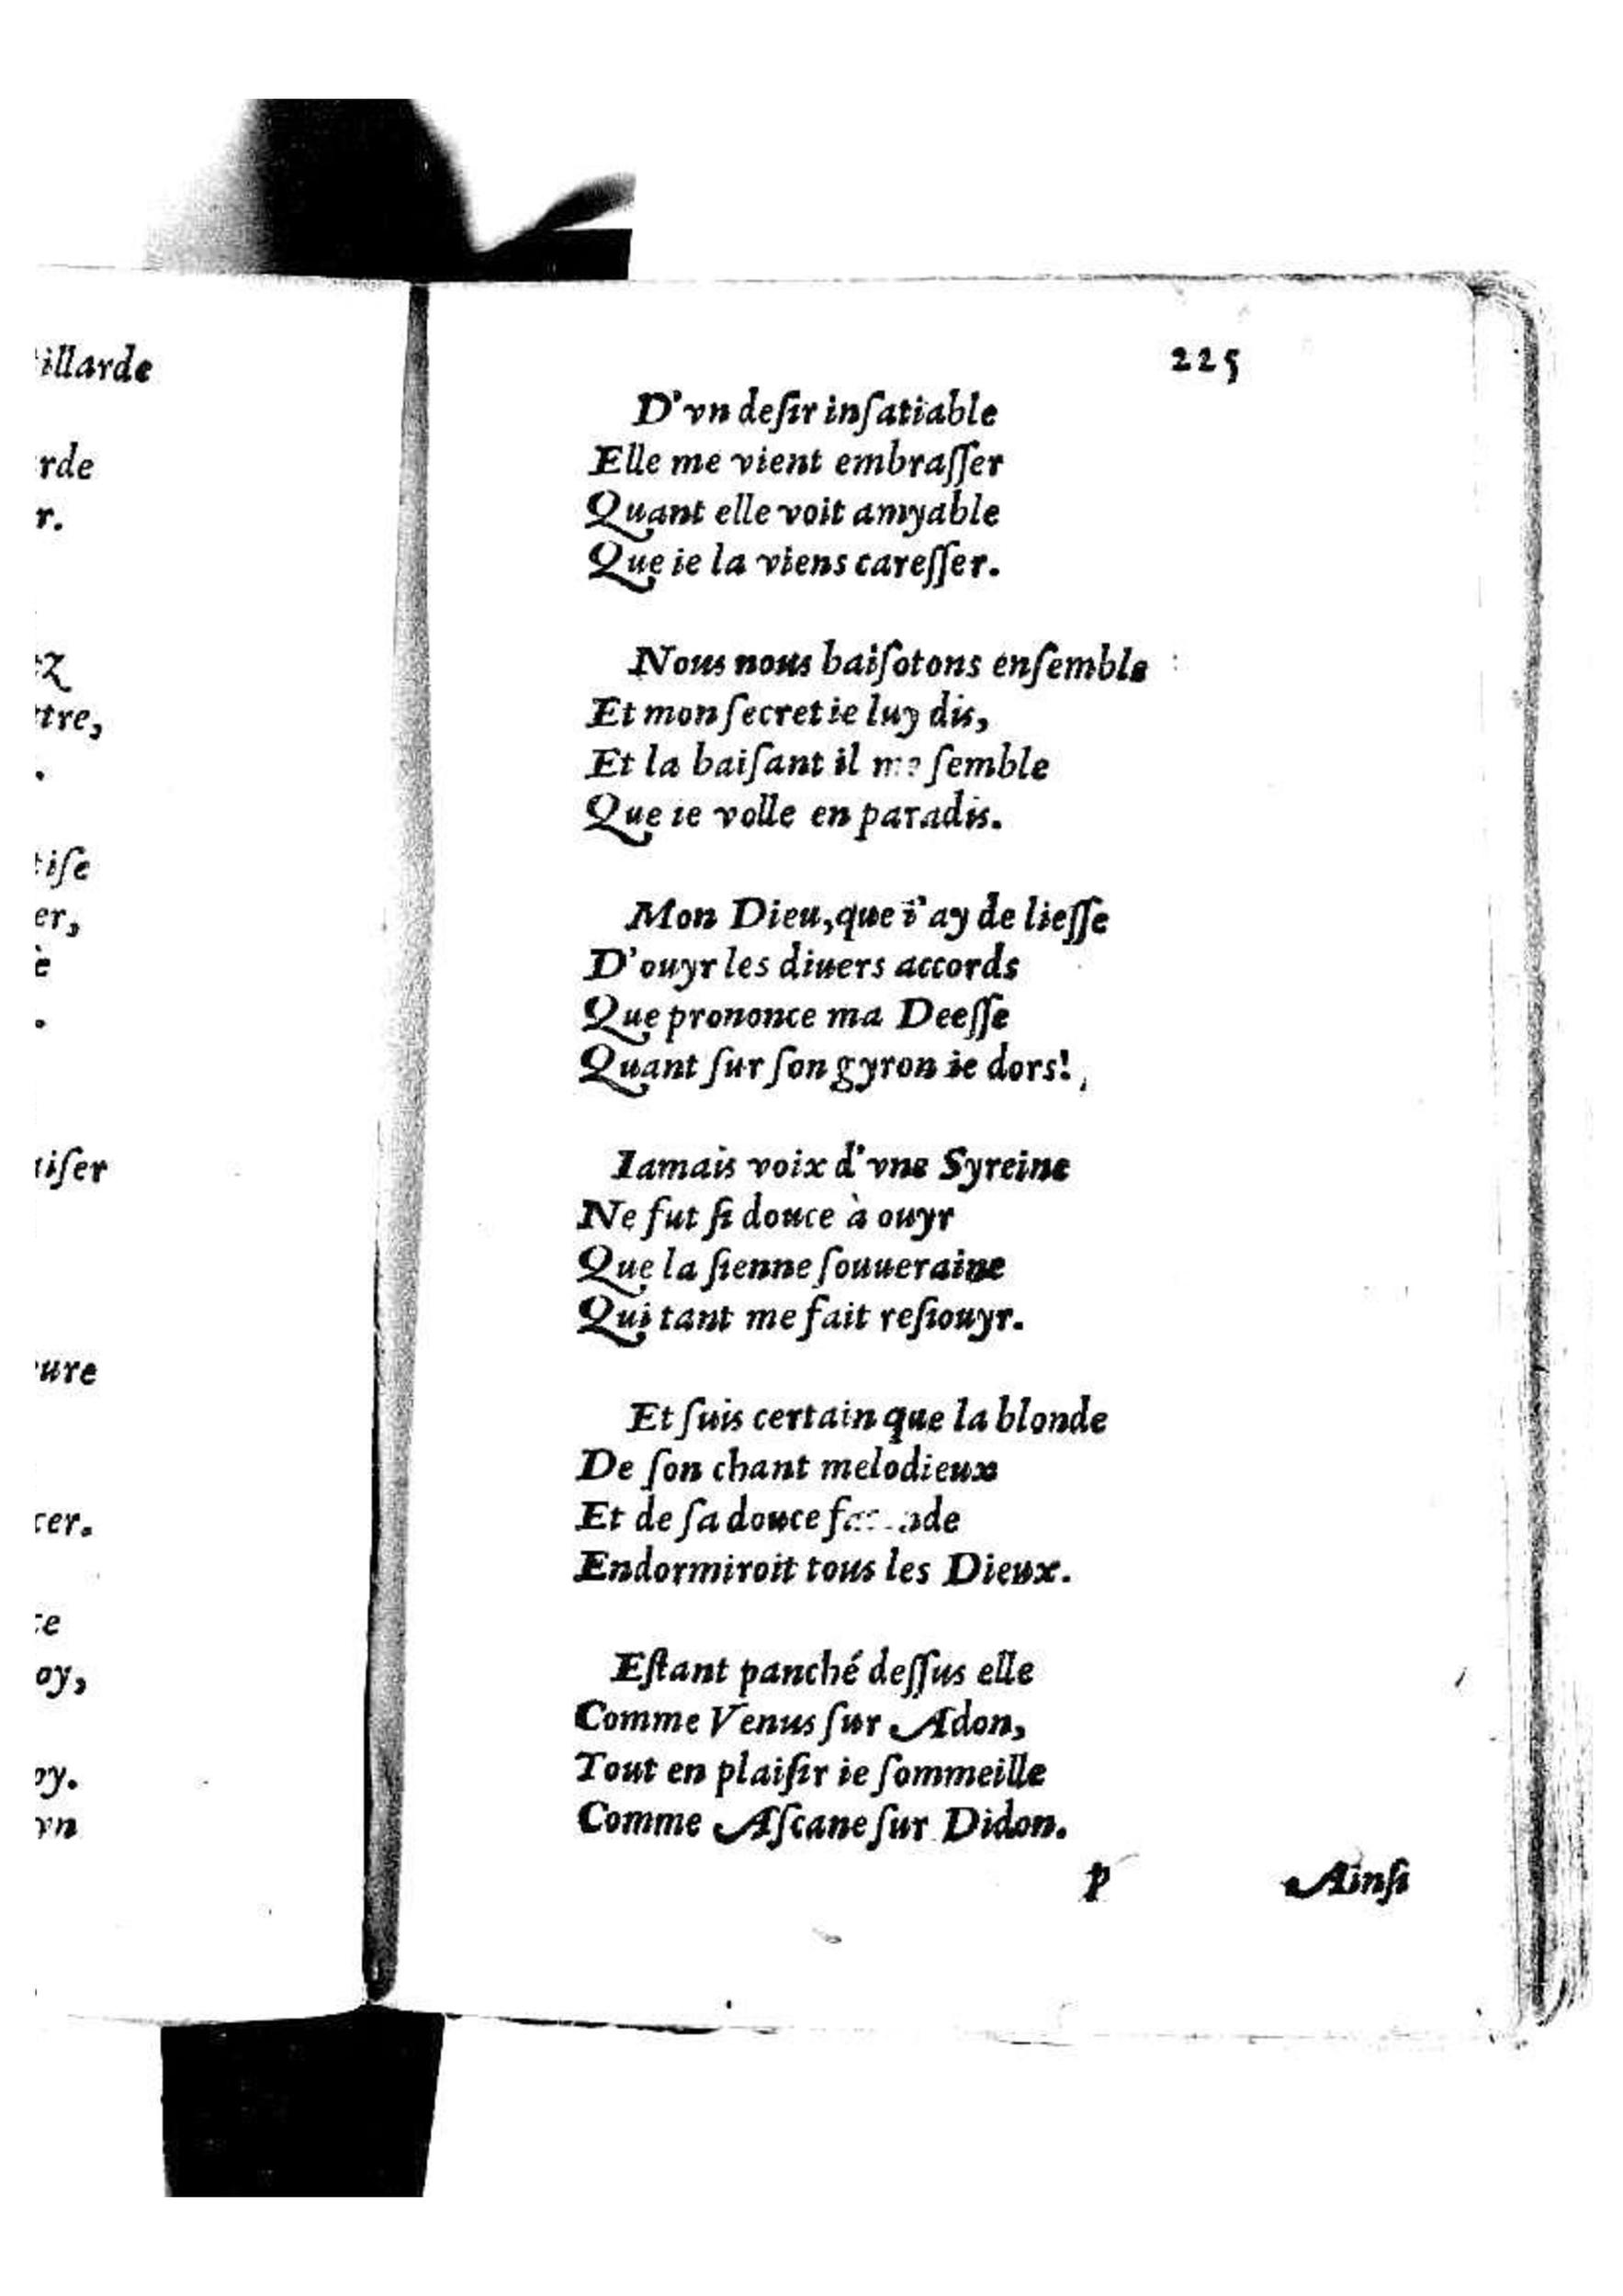 225
D'vn deſir inſatiable
Elle me vient embraſſer
Quant elle voit amyable
Que ie la viens careſſer.
Nous nous baiſotons enſemble
Et mon ſecret ie luy dis,
Et la baiſant il me ſemble
Que ie volle en paradis.
Mon Dieu, que i'ay de lieſſe
D'ouyr les diuers accords
Que prononce ma Deeſſe
Quant ſur ſon gyron ie dors!
Iamais voix d'vne Syreine
Ne fut ſi douce à ouyr
Que la ſienne ſouueraine
Qui tant me fait reſiouyr.
Et ſuis certain que la blonde
De ſon chant melodieux
Et de ſa douce
Endormiroit tous les Dieux.
Eſtant panché deſſus elle
Comme Venus ſur Adon,
Tout en plaiſir ie ſommeille
Comme Aſcane ſur Didon.
P
Ainſi